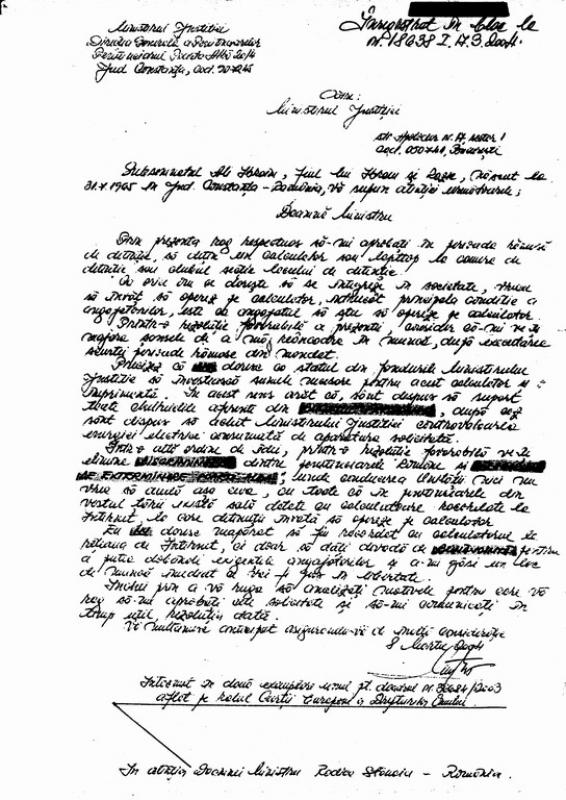 Ministerul Justiției
Direcția Generală a Penitenciarelor
Penitenciarul Poarta Albă
Jud. Constanța, cod.
Înregistrat în
nr. 18038
Către:
Ministerul Justiției
str. Apolodor nr. 17, sector
cod. 050741, București
Subsemnatul Ali Ibraim, fiul lui Ibram și născut la
1965 în Jud. Constanța - România, vă supun atenției următoarele:
Doamnă Ministru
Prin prezenta rog respectuos să-mi aprobați în perioada rămasă
de detenție, să dețin un calculator sau lapttop la camera de
detenție sau clubul secției locului de detenție.
Ca orice om ce dorește să se integreze în societate, vreau
să învăț să operez pe calculator, întrucât principala condiție a
angajatorilor, este ca angajatul să știe să opereze pe calculator.
Printr-o rezoluție favorabilă a prezentei, consider că-mi
majora șansele de a mă reîncadra în muncă, după executarea
scurtei perioade rămase din mandat.
Precizez că doresc ca statul din fondurile Ministerului
Justiției să investească sumele necesare pentru acest calculator și
imprimantă. În acest sens arăt că, sunt dispus să suport
toate cheltuielile aferente din după ce
sunt dispus să achit Ministerului Justiției contravaloarea
energiei electrice consumată de aparatura solicitată.
Într-o altă ordine de idei, printr-o rezoluție favorabilă
elimina dintre penitenciarele Române și
unde conducerea Unității nici nu
vrea să audă așa ceva, cu toate că în penitenciarele din
vestul țării există sală dotată cu calculatoare racordate la
Internet, pe care deținuții învață să opereze pe calculator.
Eu doresc neapărat să fiu racordat cu calculatorul la
rețeaua de Internet, ci doar să dați dovadă de pentru
a putea dobândi exigențele angajatorilor și a-mi găsi un loc
de muncă imediat ce voi fi pus în libertate.
Închei prin a vă ruga să analizați motivele pentru care vă
rog să-mi aprobați cele solicitate și să-mi comunicați în
timp util, rezoluția dată.
Vă mulțumesc anticipat asigurându-vă de multă considerație
8 Martie 2004
Întocmit în două exemplare unul pt. dosarul nr. /2003
aflat pe rolul Curții Europene a Drepturilor Omului.
În atenția Doamnei Ministru Rodica Stănoiu - România.